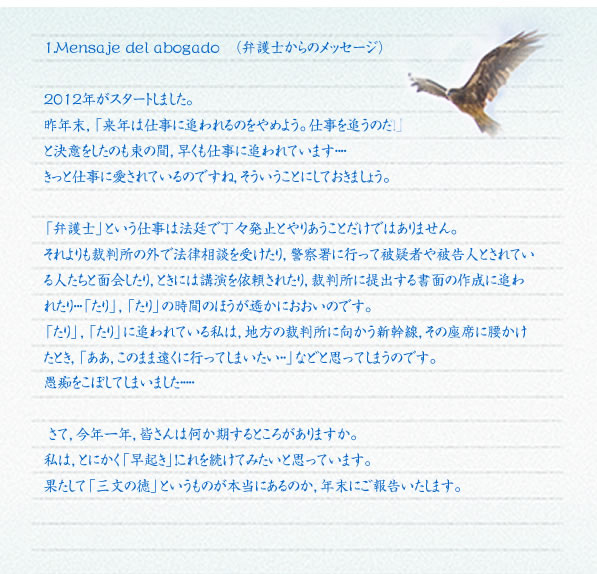 1.Mensaje del abogado （弁護士からのメッセージ）
2012年がスタートしました。
昨年末，「来年は仕事に追われるのをやめよう。仕事を追うのだ」
と決意をしたのも束の間，早くも仕事に追われています‥‥
きっと仕事に愛されているのですね，そういうことにしておきましょう。
「弁護士」という仕事は法廷で丁々発止とやりあうことだけではありません。
それよりも裁判所の外で法律相談を受けたり，警察署に行って被疑者や被告人とされてい
る人たちと面会したり，ときには講演を依頼されたり，裁判所に提出する書面の作成に追わ
れたり…「たり」，「たり」の時間のほうが遥かにおおいのです。
「たり」，「たり」に追われている私は，地方の裁判所に向かう新幹線，その座席に腰かけ
たとき，「ああ，このまま遠くに行ってしまいたい‥」などと思ってしまうのです。
愚痴をこぼしてしまいました‥‥‥
さて，今年一年，皆さんは何か期するところがありますか。
私は，とにかく「早起き」これを続けてみたいと思っています。
果たして「三文の徳」というものが本当にあるのか，年末にご報告いたします。